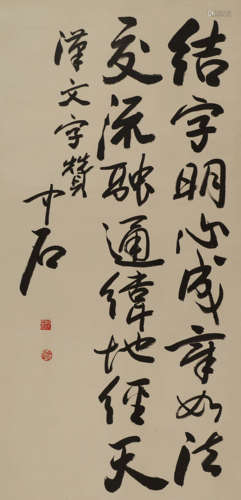 结字明心成章如法
交流融通纬地经天
漢文字贊
中石